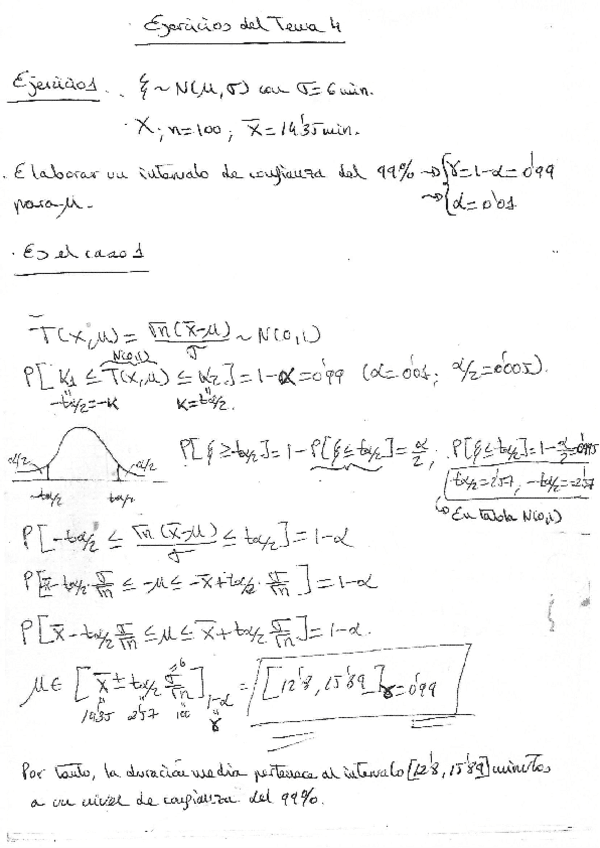 Ejercicios del Tema 4
Ejercicio 1. ξ ~ N(μ, σ) con σ = 6 min.
· X; n=100; x̄ = 14'35 min.
· Elaborar un intervalo de confianza del 99% → { γ = 1-α = 0'99
para μ. → { α = 0'01
· Es el caso 1
T(X, μ) = √n (x̄-μ) / σ ~ N(0,1)
N(0,1)
P[ K₁ ≤ T(X, μ) ≤ K₂ ] = 1-α = 0'99 (α = 0'01; α/2 = 0'005).
-tα/2 = -K K = tα/2.
α/2 α/2 P[ξ ≥ tα/2] = 1 - P[ξ ≤ tα/2] = α/2; P[ξ ≤ tα/2] = 1 - α/2 = 0'995
-tα/2 tα/2 tα/2 = 2'57; -tα/2 = -2'57
En tabla N(0,1)
P[ -tα/2 ≤ √n (x̄-μ) / σ ≤ tα/2 ] = 1-α
P[ x̄ - tα/2 · σ/√n ≤ -μ ≤ -x̄ + tα/2 · σ/√n ] = 1-α
P[ x̄ - tα/2 σ/√n ≤ μ ≤ x̄ + tα/2 σ/√n ] = 1-α.
μ ∈ [ x̄ ± tα/2 σ/√n ]1-α = [12'8, 15'89] γ = 0'99
14'35 2'57 = 6 100 γ
Por tanto, la duración media pertenece al intervalo [12'8, 15'89] minutos
a un nivel de confianza del 99%.